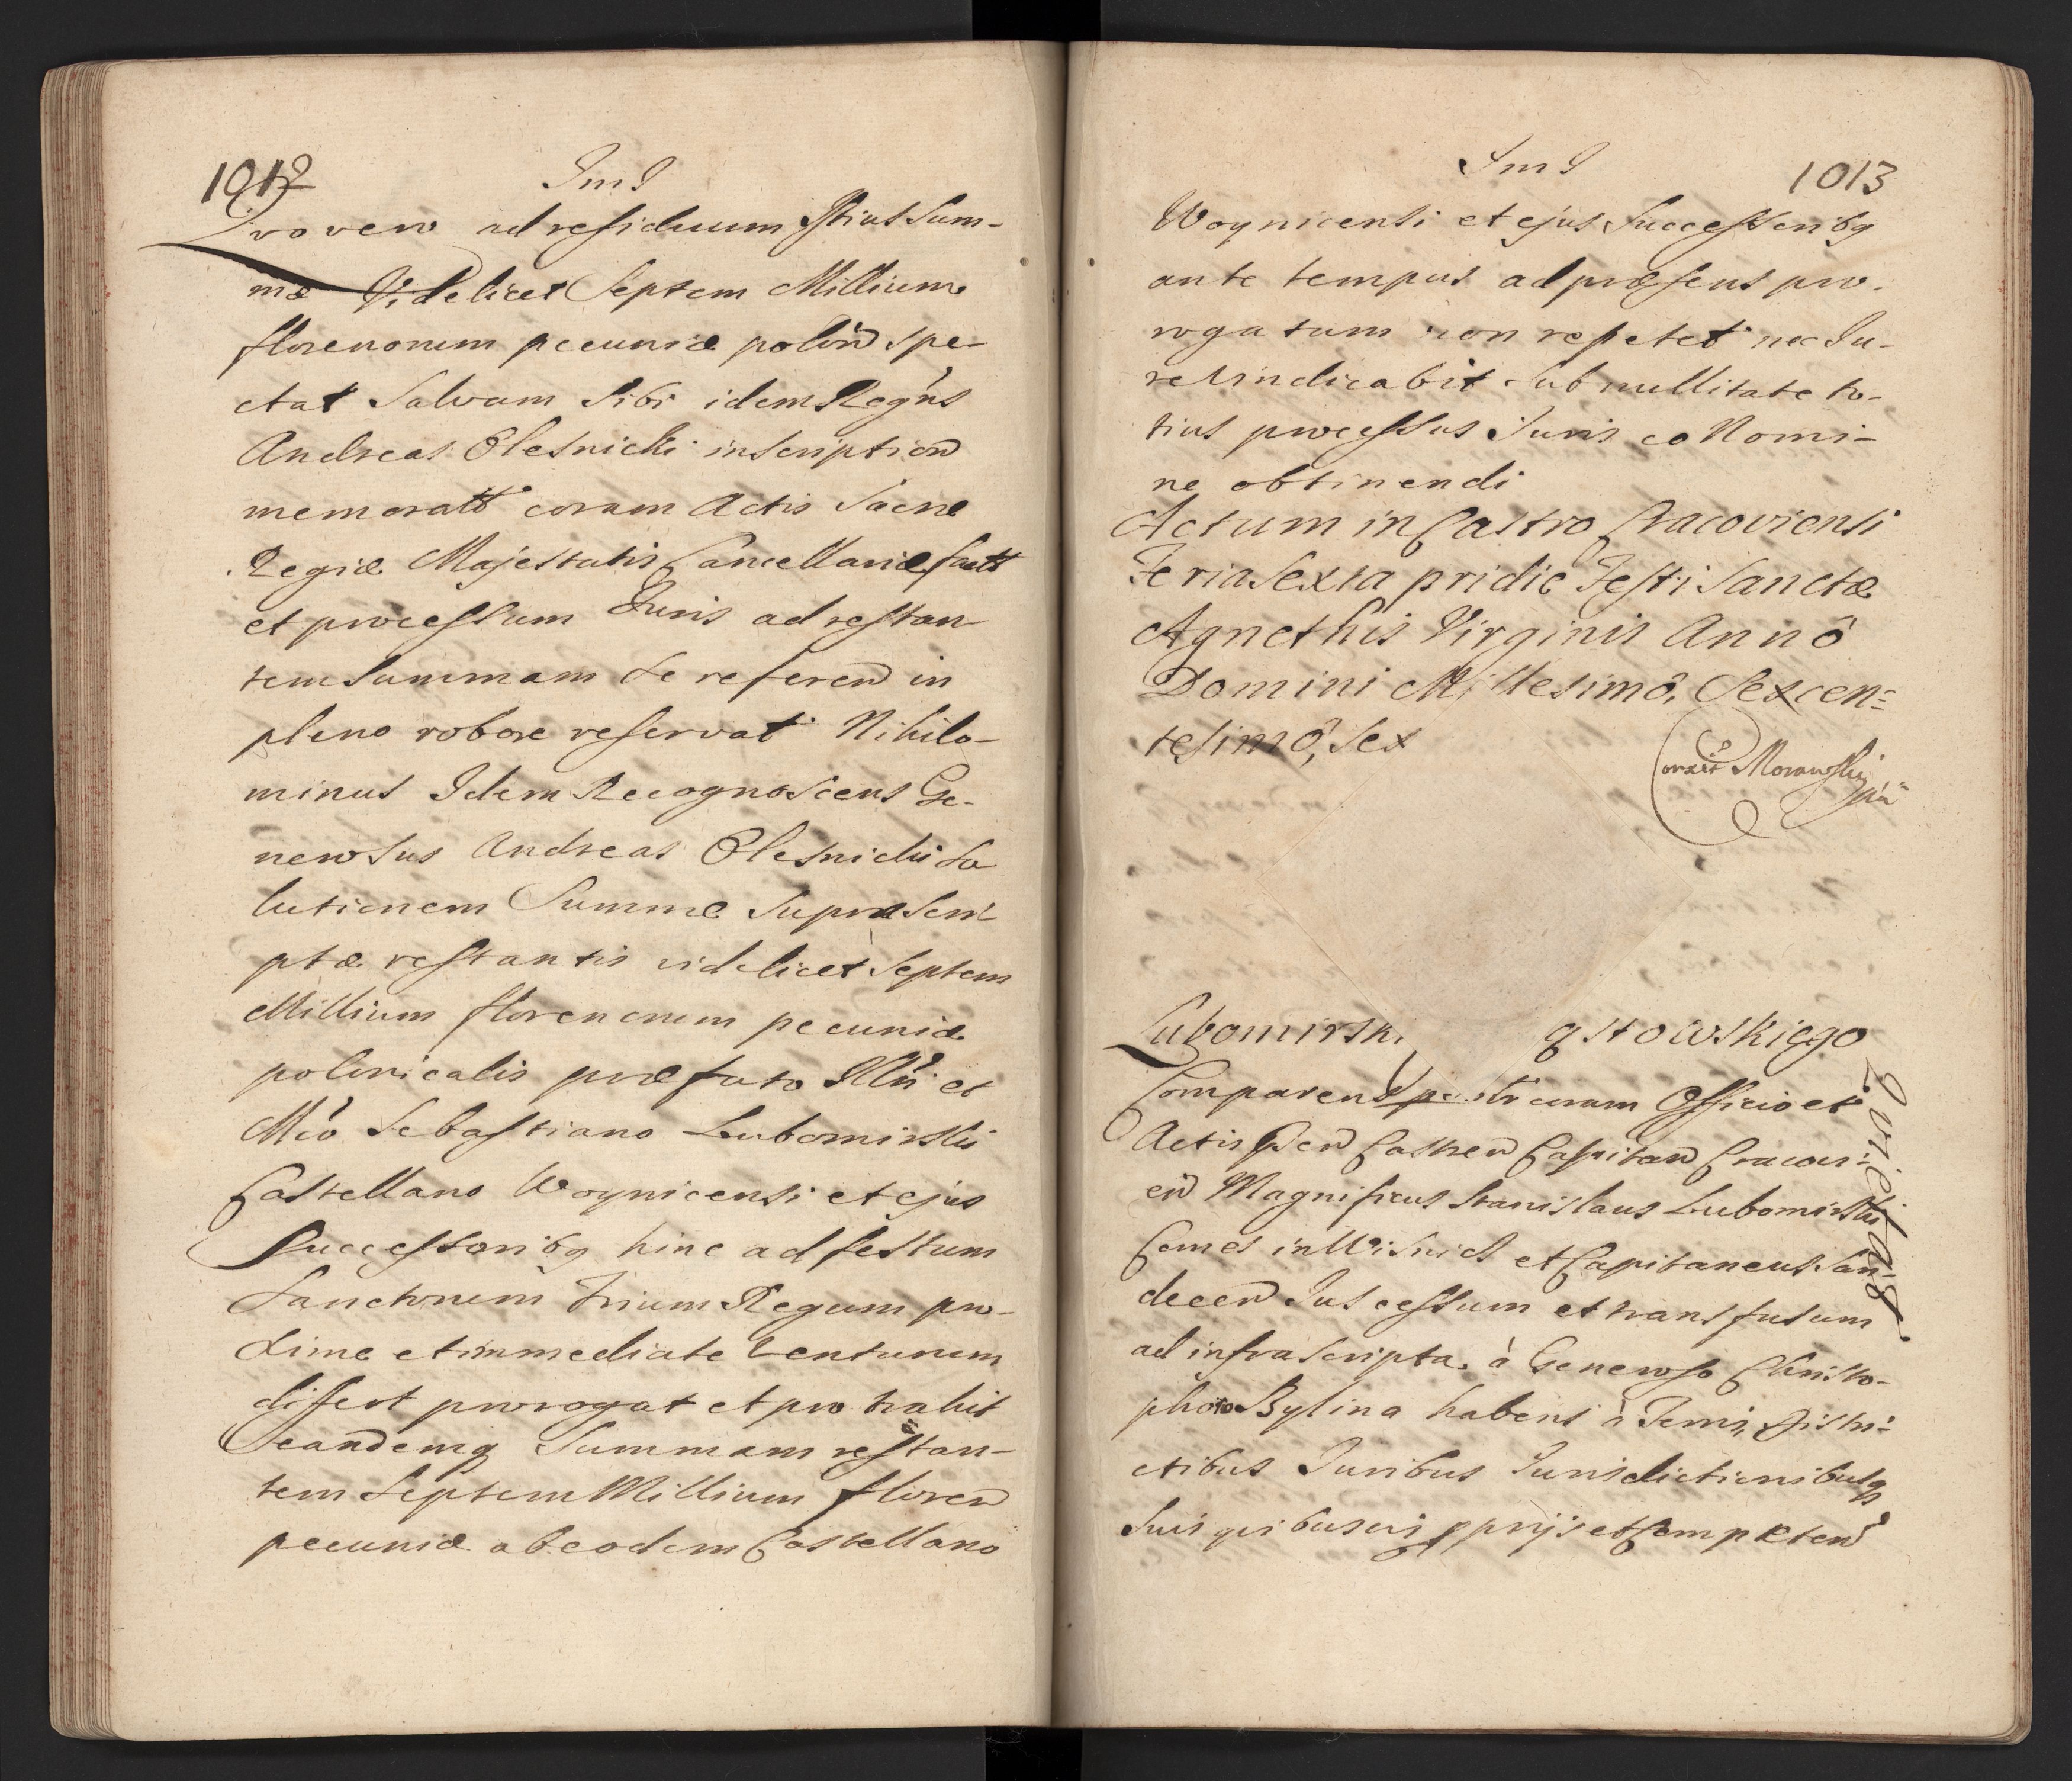 1012
Quo vero ad residuum Istius Sum-
mæ Videlicet Septem Millium
florenorum pecuniæ polon̄ spe-
ctat Salvam Sibi idem Regn̄s
Andreas Olesnicki inscription̄
memoratt coram Actis Sacræ
Regiæ Majestatis Cancellariæ fact
et processum Juris ad restan-
tem Summam se referen̄ in
pleno robore reservat Nihilo-
minus Idem Recognoscens Ge-
nerosus Andreas Olesnicki so
lutionem Summæ Supra Scri
ptæ restantis videlicet Septem
Millium florenorum pecuniæ
polonicalis præfato Illri et
Mco Sebastiano Lubomirski
Castellano Woynicensi et ejus
Successoribq hinc ad festum
Sanctorum Trium Regum pro-
xime et immediate venturum
differt prorogat et pro trahit
eandemq Summam restan-
tem Septem Millium floren̄
pecuniæ ab eodem Castellano
1013
Woynicensi et ejus Successoribq
ante tempus ad præsens pro-
rogatum non repetet nec Ju-
re vindicabit Sub nullitate to-
tius processus Juris eo Nomi-
ne obtinendi
Actum in Castro Cracoviensi
Feria Sexta pridie Festi Sanctæ
Agnethis Virginis Annô
Domini Millesimô, Sexcen=
tesimô, Sex
Morawski
Lubomirski qstowskiego
Quietat
Comparens coram Officio et
Actis pn̄ Castren̄ Capitan̄ Cracovi-
en̄ Magnificus Stanislaus Lubomirski
Comes in Wisnicz et Capitaneus San-
decen̄ Jus cessum et transfusum
ad infrascripta à Generoso Christo-
phoro Bylina habens à Terris Distri-
ctibus Juribus Jurisdictionibusq
Suis quibusvis pprijs et Competen̄